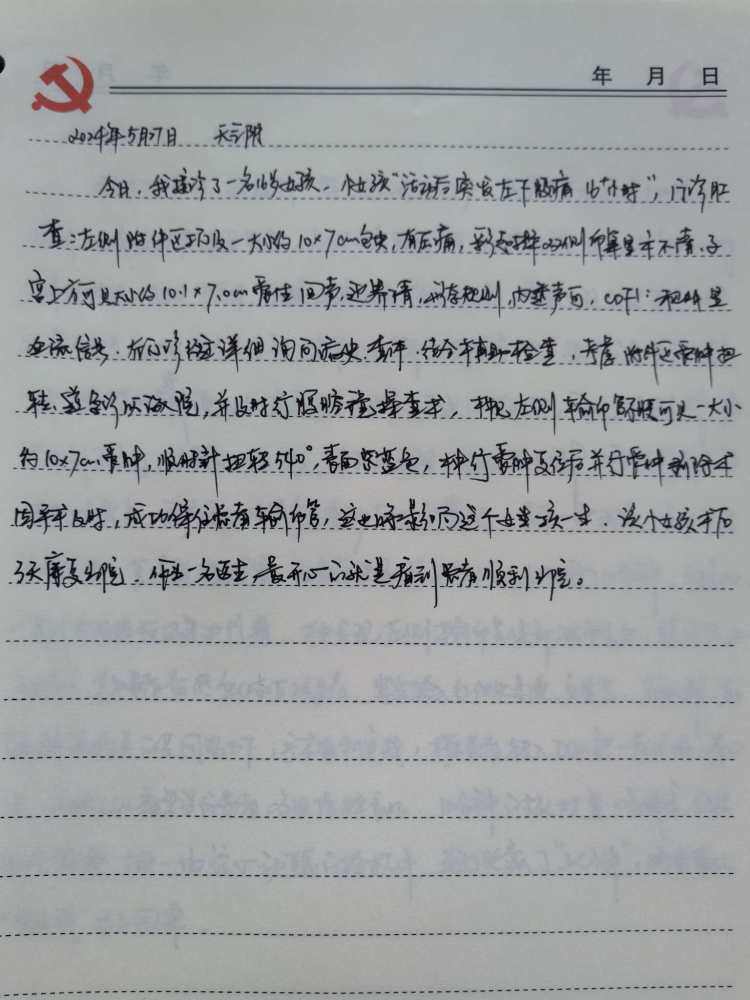 年 月 日
2024年5月27日 天气阴
今日,我接诊了一名16岁女孩,个女孩"活动后突发左下腹痛16+小时",门诊肛
查:左侧附件区扪及一大小约10×7cm包块,有压痛,彩超提示双侧卵巢显示不清,子
宫上方可见大小约10.1×7.0cm囊性回声,边界清,形态规则,内透声可,CDFI:未见明显
血流信号,我们诊治详细询问病史,查体,结合辅助检查,考虑附件区囊肿扭
转,遂急诊收入院,并及时行腹腔镜探查术,术见左侧输卵管系膜可见一大小
约10×7cm囊肿,顺时针扭转540°,表面紫蓝色,术中行囊肿复位后并行囊肿剥除术
因手术及时,成功保住患者输卵管,这也将影响这个女孩一生,该个女孩术后
3天康复出院,作为一名医生,最开心的就是看到患者顺利出院。